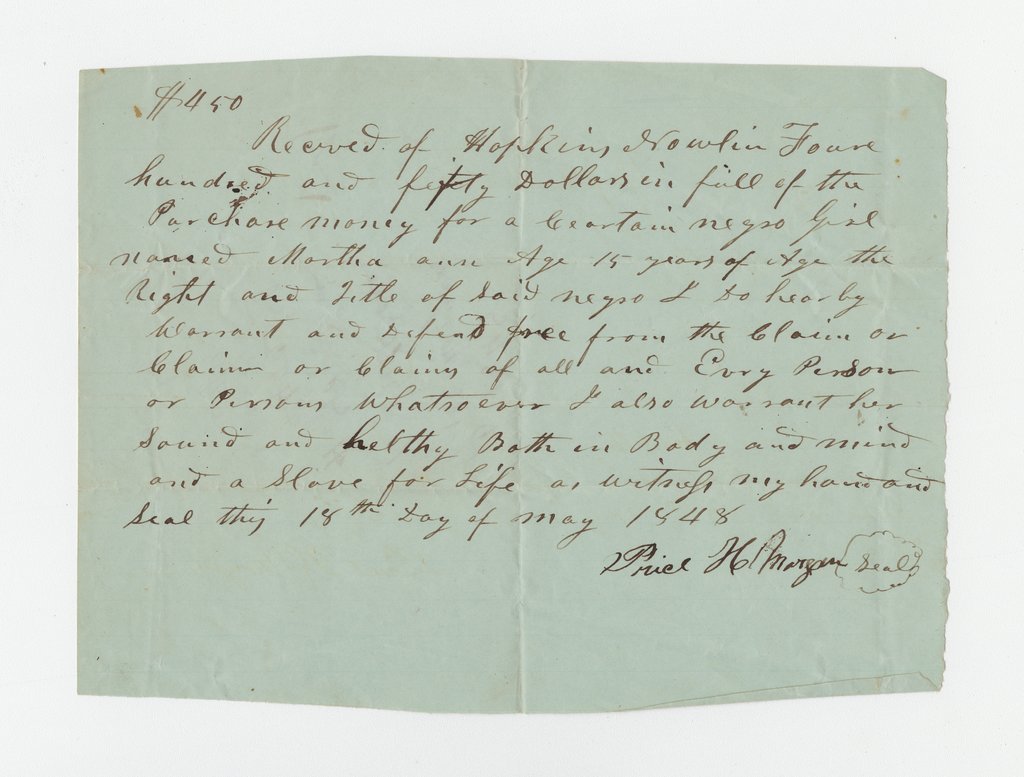 $450
Recived. of Hopkins Nowlin Foure
hundred and fifty Dollars in full of the
Purchase money for a Ceartain negro Girl
named Martha ann Age 15 years of Age the
Right and Title of Said negro I Do hearby
Warrant and Defend free from the Claim or
Claim or Claims of all and Evry Person
or Persons Whatsoever I also warrant her
Sound and helthy Both in Body and mind
and a Slave for Life as witness my hand and
Seal this 18th Day of may 1848
Price H Morgan Seal